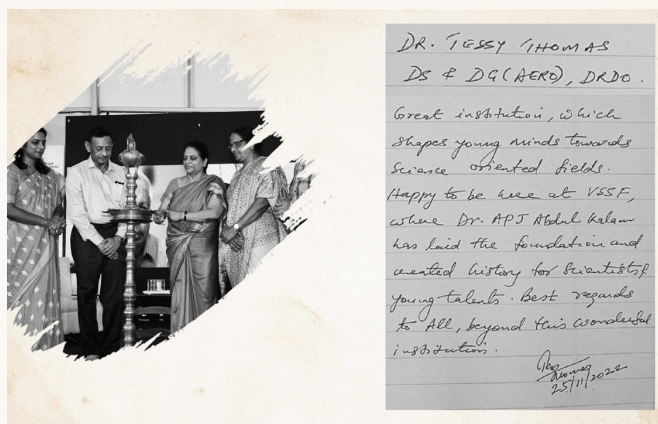 DR. TESSY THOMAS
DS & DG(AERO), DRDO.
Great institution, which
shapes young minds towards
science oriented fields.
Happy to be here at VSSF,
where Dr. APJ Abdul Kalam
has laid the foundation and
created history for Scientists &
young talents. Best regards
to All, beyond this wonderful
institution.
Tessy
Thomas
25/11/2022